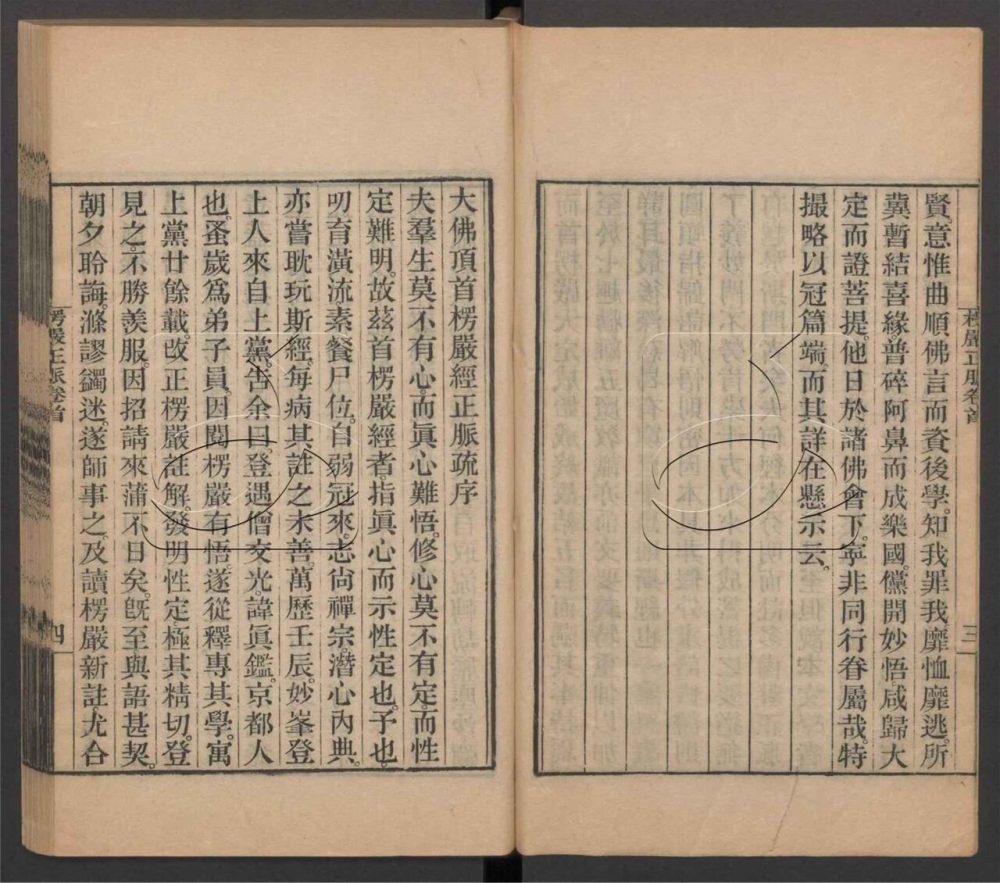 賢。意惟曲順佛言而資後學。知我罪我靡恤靡逃。所
冀暫結喜緣普碎阿鼻而成樂國。儻開妙悟咸歸大
定而證菩提。他日於諸佛會下。寧非同行眷屬哉特
撮略以冠篇端。而其詳在懸示云。
三
大佛頂首楞嚴經正脈疏序
夫羣生莫不有心而眞心難悟。修心莫不有定。而性
定難明。故茲首楞嚴經者。指眞心而示性定也。予也
叨育潢流素餐尸位。自弱冠來。志尙禪宗。潛心內典。
亦嘗耽玩斯經。每病其註之未善。萬歷壬辰。妙峯登
上人來自上黨。告余曰。登遇僧交光。諱眞鑑。京都人
也。蚤歲爲弟子員。因閱楞嚴有悟。遂從釋專其學。寓
上黨廿餘載。改正楞嚴註解。發明性定極其精切。登
見之。不勝羨服。因招請來蒲不日矣。旣至與語甚契。
朝夕聆誨。滌謬蠲迷。遂師事之。及讀楞嚴新註。尤合
楞嚴正脈卷首
四